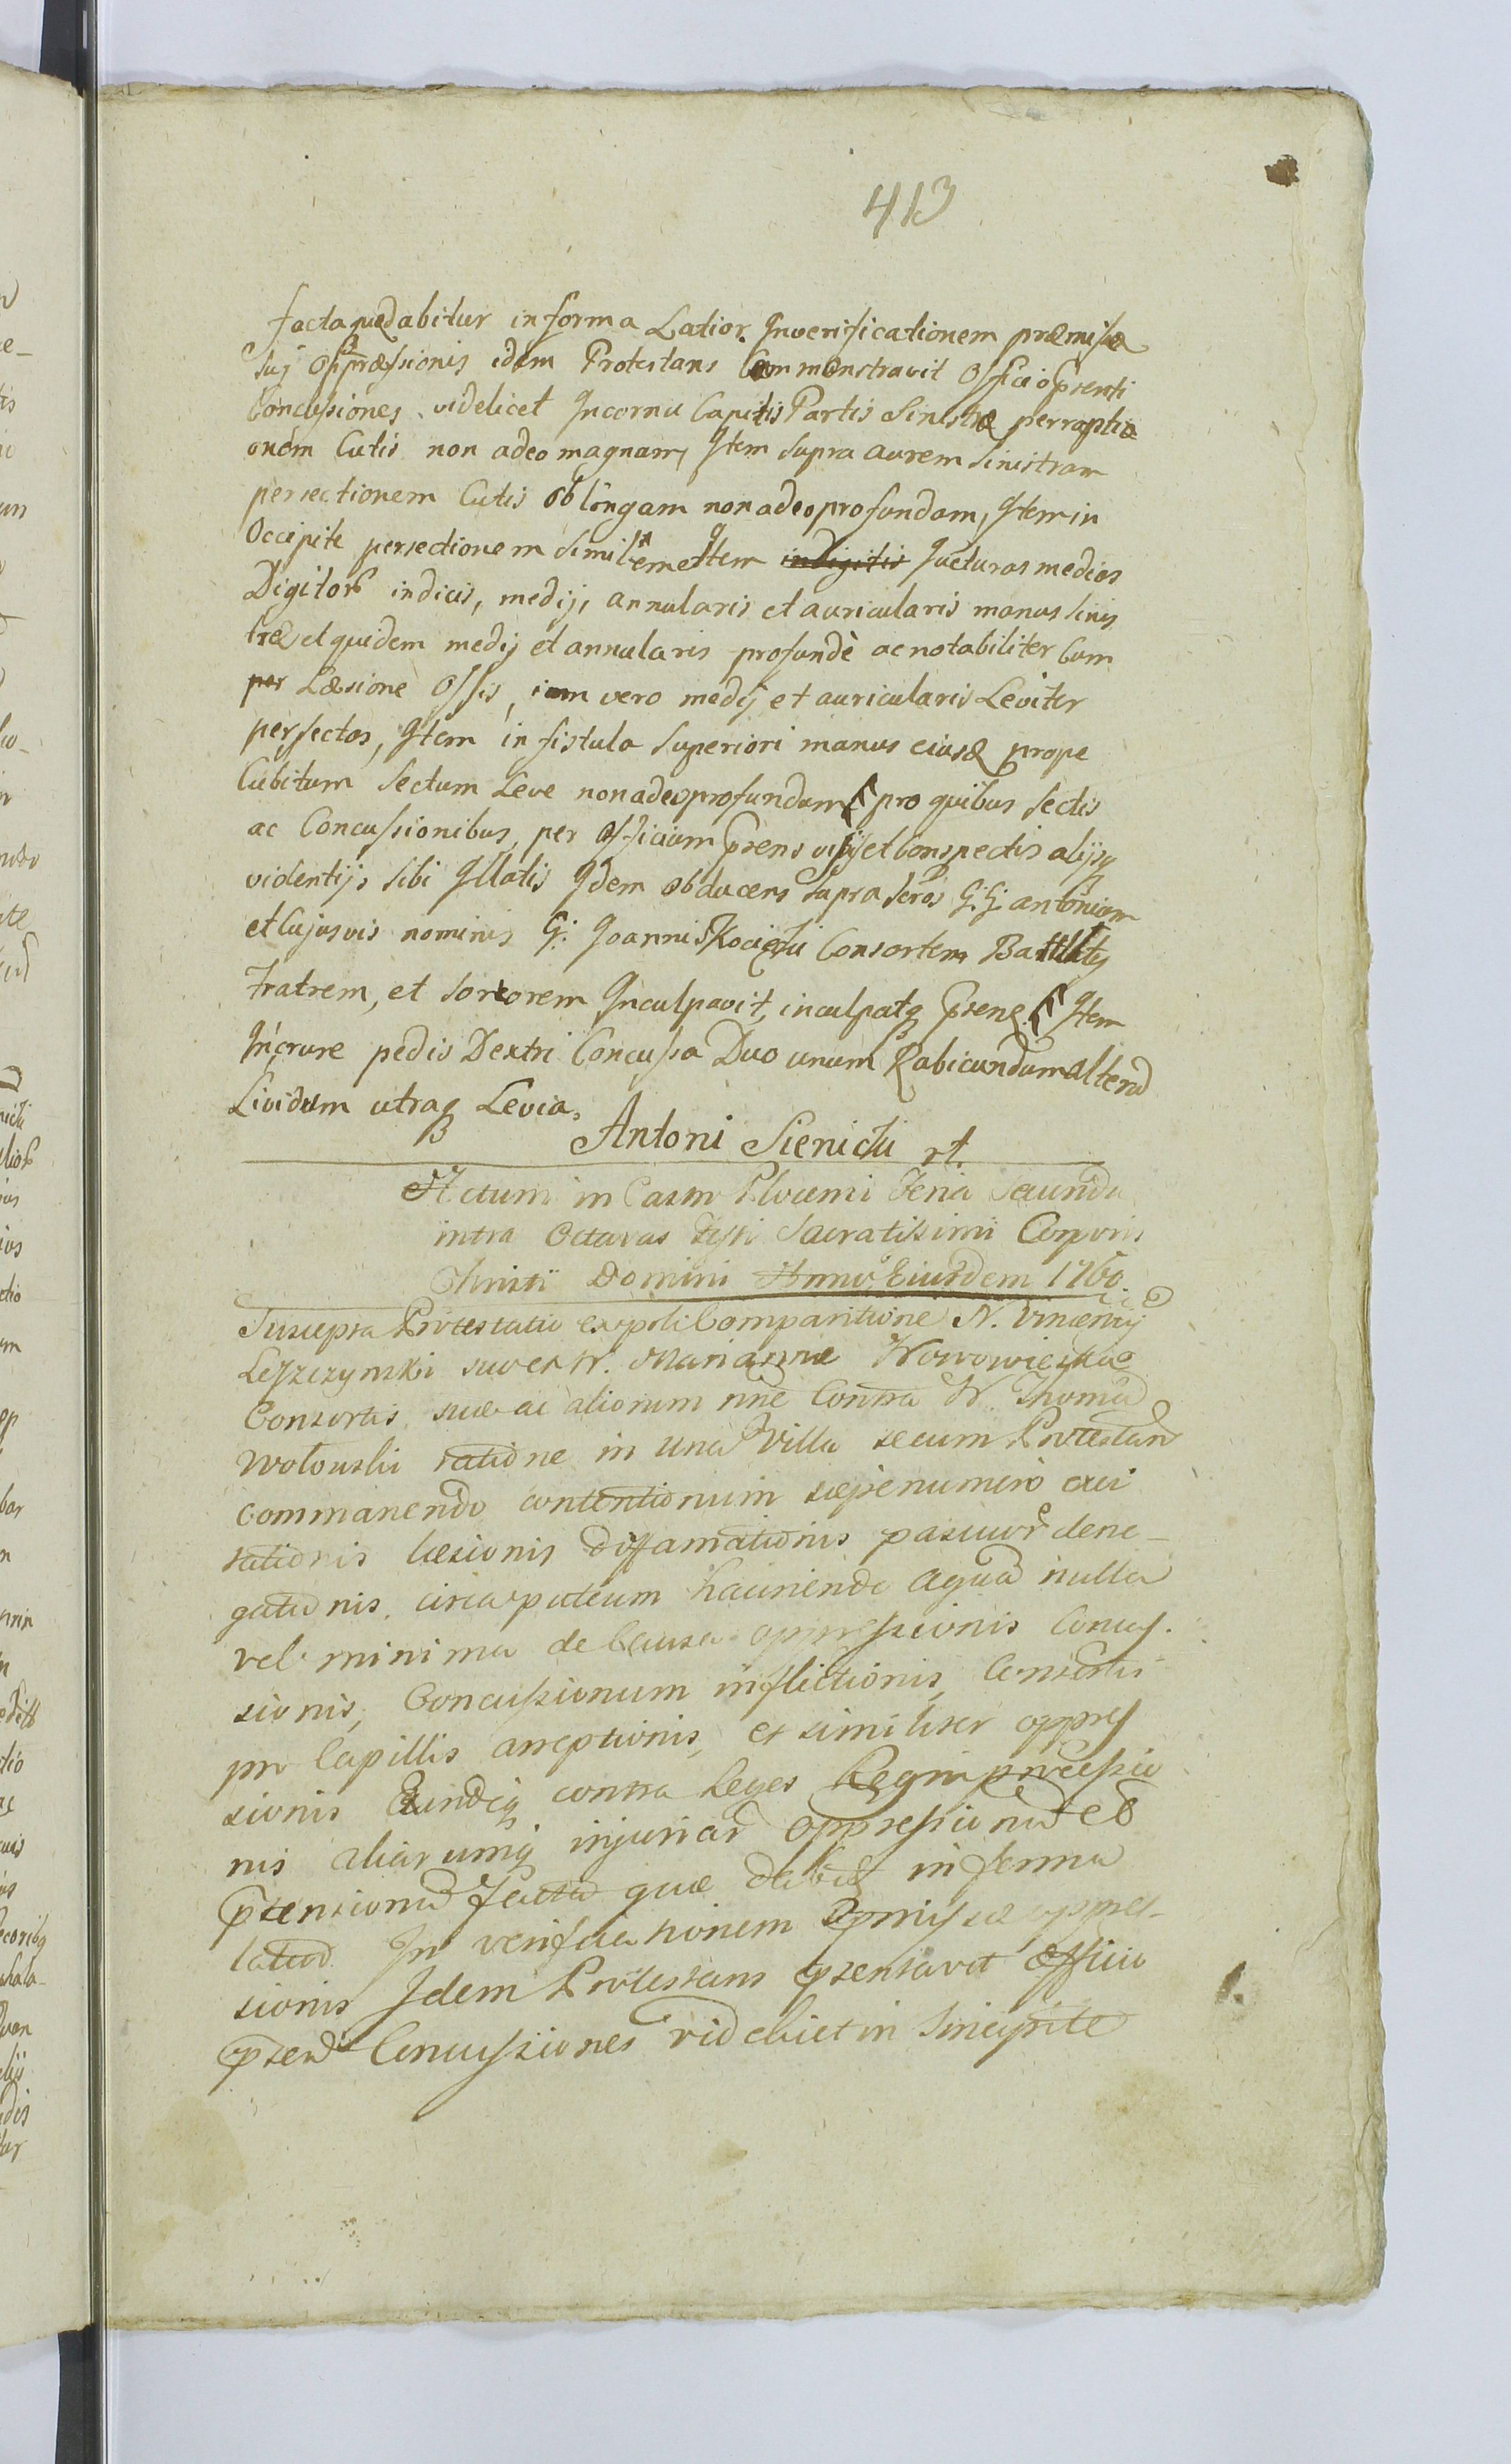 413
facta quæ dabitur in forma Latior. Inverificationem præmissæ
suj Oppræssionis idem Protestans Commonstravit Officio Prsenti
Concussiones videlicet Incornu Capitis Partis Sinistræ perruptio
onem Cutis non adeo magnam, Item supra aurem sinistram
persectionem Cutis oblongam non adeo profundam, Item in
Occipite persectionem similem Item in digitis Juncturas medias
Digitor indicis, medij, annularis et auricularis manus sinis
træ et quidem medij et annularis profundè ac notabiliter Cum
per Læsione Ossis, vero medij et auricularis Leviter
persectos, Item in fistula superiori manus eiusd prope
Cubitum sectum Leve non adeo profundum pro quibus sectis
ac Concussionibus, per Officium Prsens visis et Conspectis alijsq
violentijs sibi Illatis Idem obducens supra Scros G.G. antonium
et Cujusvis nominis G. Joannis Kocięcki Consortem
Fratrem, et sororem Inculpavit, inculpatq Prsen. Item
In crure pedis Dextri Concussa Duo unum Rubicundum alterd
Lividum utraq Levia.
Antoni Sienicki rt.
Actum in Castro Plocensi Feria Secunda
intra Octavas Festi Sacratissimi Corporis
Christi Domini Anno Eiusdem 1760.
Suscepta Protestatio ex psoli Comparitione N. Vincenty
Leszczynski suo et N. Mariannæ Nowowieskæ
Consortis suæ ac aliorum nne Contra N. Thomã
Wolouski ratione in una Villa secum Protestan
commanendo contentionum sæpenumero exci
tationis læsionis diffamationis pascuor dene-
gationis, circa puteum hauriendo aquã nulla
vel minima de Causa oppressionis Concus.
sionis, Concussionum inflictionis, Consortis
pro Capillis arreptionis, et similiter oppres
sionis Eundiq contra Leges Regni processio
nis aliarumq injuriar oppressionũ et
ptensionũ facta quæ dabit in forma
latiorj. In verificationem pmissæ oppres-
sionis Idem Protestans psentavit Officio
psenti Concussiones videlicet in Sincipite